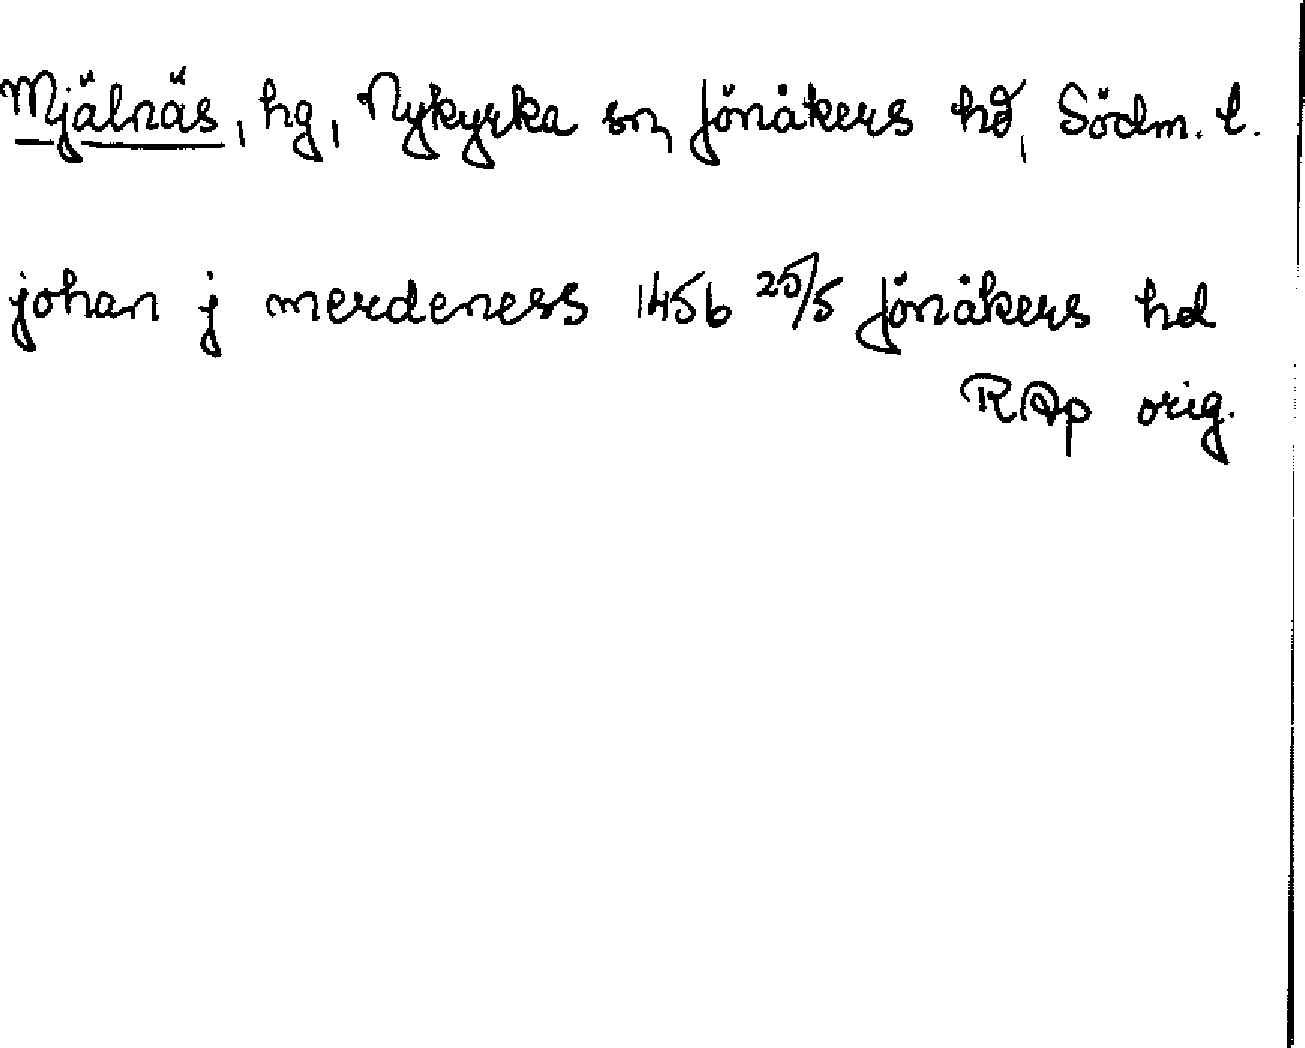 Mjälnäs, hg, Nykyrka sn, Jönåkers hd, Södm. l.
johan j merdeness 1456 25/5 Jönåkers hd
RAp orig.